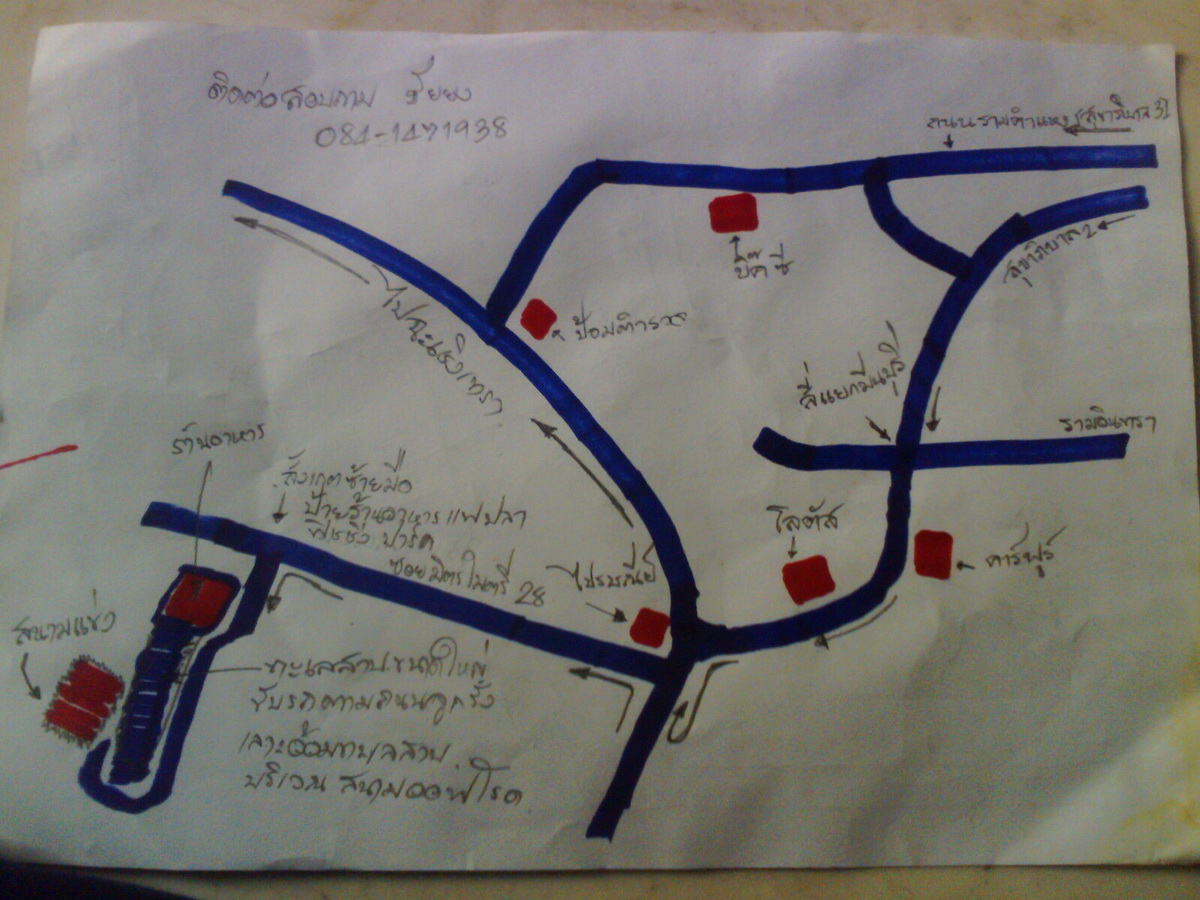 ติดต่อสอบถาม ชัยยง
084-1471938
ถนนรามคำแหง (สุขาภิบาล 3)
บิ๊กซี
สุขาภิบาล 2
ป้อมตำรวจ
ไปฉะเชิงเทรา
สี่แยกมีนบุรี
รามอินทรา
ร้านอาหาร
สังเกตซ้ายมือ
ป้ายร้านอาหาร แพปลา
ฟิชชิ่ง ปาร์ค
ซอยมิตรไมตรี 28
ไปรษณีย์
โลตัส
คาร์ฟูร์
สนามแข่ง
ทะเลสาบขนาดใหญ่
ขับรถตามถนนลูกรัง
เลาะอ้อมทะเลสาบ
บริเวณ สนามออฟโรด